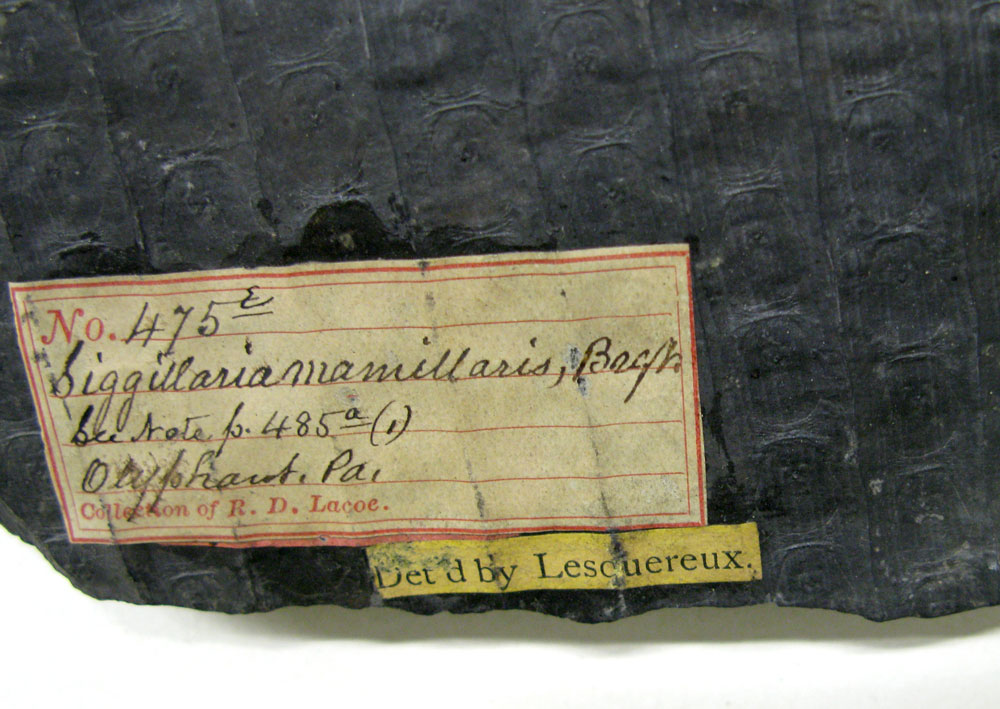 No. 475 E
Siggillaria mamillaris, Brgt.
See Note p. 485 a (1)
Olyphant. Pa.
Collection of R. D. Lacoe.
Det'd by Lesquereux.